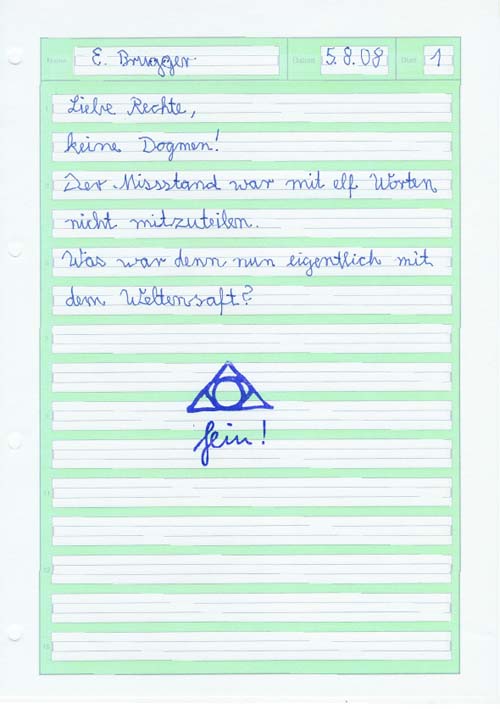 Name E. Brugger Datum 5.8.08 Blatt 1
Liebe Rechte,
keine Dogmen!
Der Missstand war mit elf Worten
nicht mitzuteilen.
Was war denn nun eigentlich mit
dem Weltensaft?
fein!